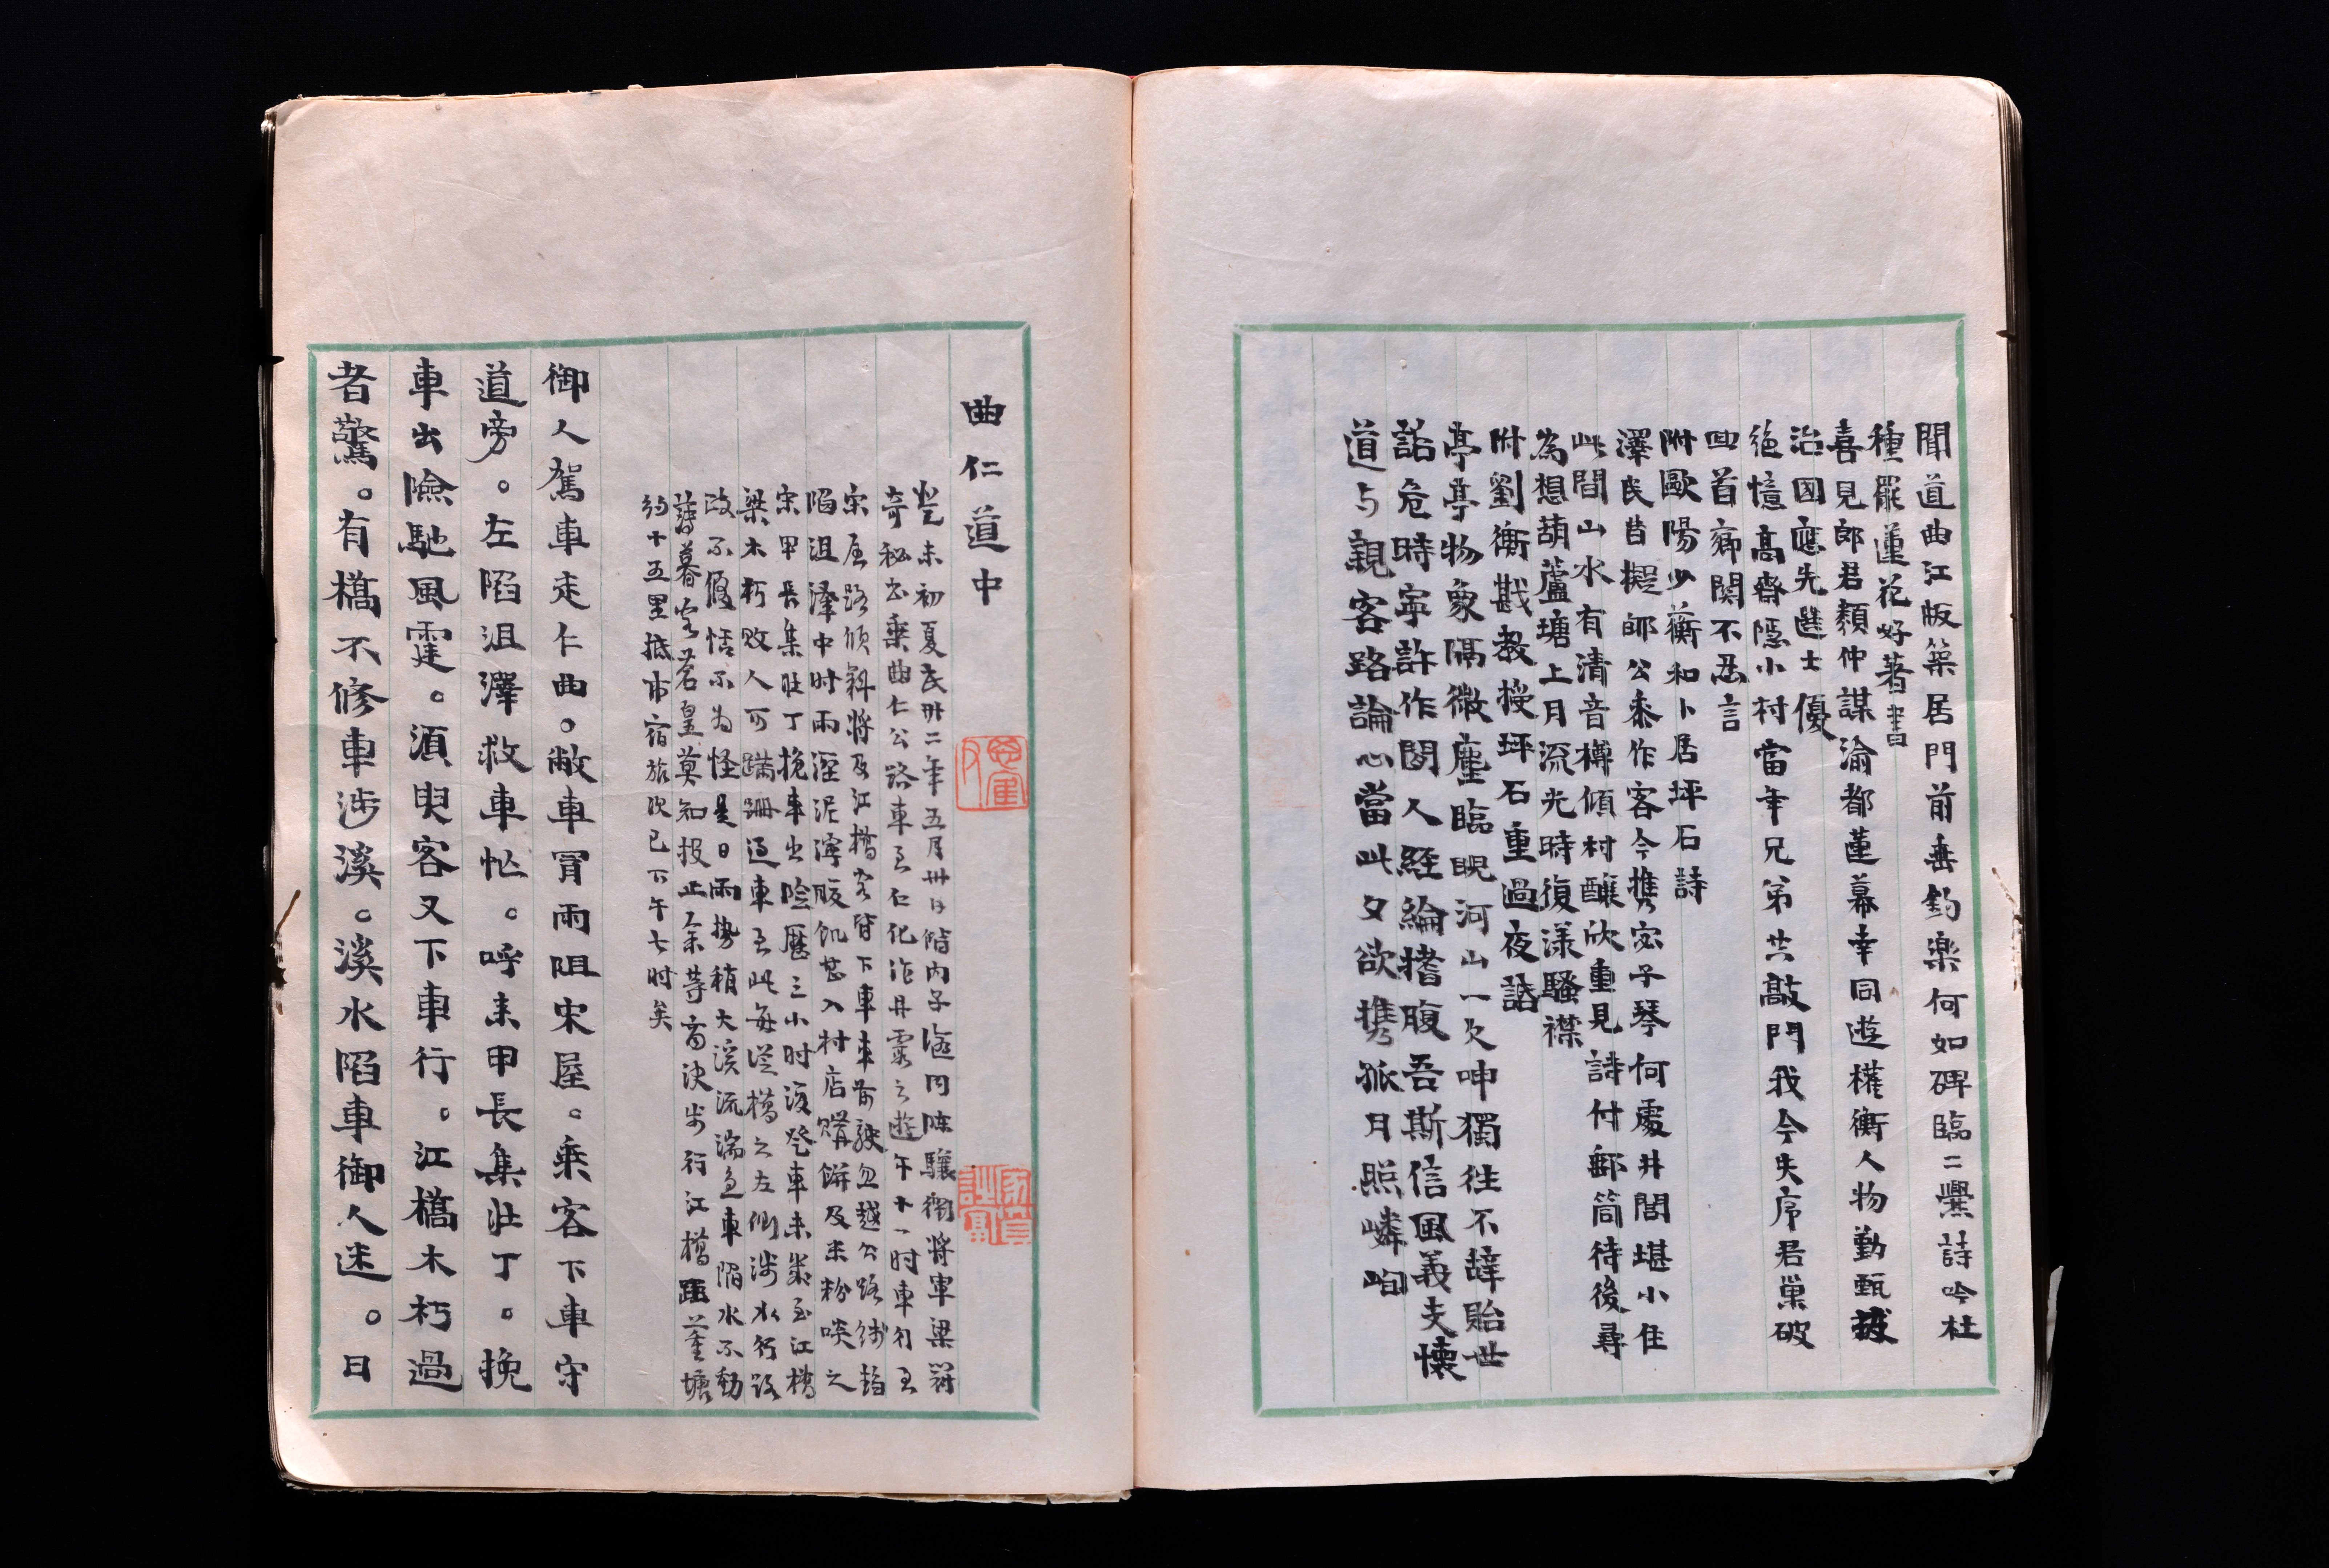 聞道曲江版築居門前垂釣樂何如碑臨二爨詩吟杜
種罷蓮花好著書
喜見郎君類仲謀渝都蓮幕幸同遊權衡人物勤甄拔
治國應先進士優
絕憶高齋隱小村當年兄弟共敲門我今失席君巢破
回首鄉関不忍言
附歐陽少蘅和卜居坪石詩
澤民昔擬師公黍作客今携宓子琴何處井閭堪小住
此間山水有清音樽傾村釀欣重見詩付郵筒待後尋
為想葫蘆塘上月流光時復漾騷襟
附劉衡戡教授坪石重過夜話
亭亭物象隔微塵臨睨河山一欠呻獨往不辭貽世
詬危時寧許作閒人經綸撐腹吾斯信風義支懷
道与親客路論心當此夕欲携孤月照嶙峋
曲仁道中
癸未初夏民卅二年五月卅日偕内子同陳驤衢將軍梁
奇秘書乘曲仁公路車至仁化作丹霞之遊午十一时車行至
宋屋路傾斜將及江橋客皆下車車前驶忽越公路线
陷沮澤中时雨濘泥濘腹飢甚入村店購餅及米粉啖之
宋甲長集壯丁挽車出險歷三小时復登車未幾至江橋
梁木朽敗人可蹣跚過車至此每從橋之左側涉水行路
政不修恬不为怪是日雨勢稍大溪流湍急車陷水不動
薄暮客蒼皇莫知报止余等商決步行江橋距董塘
約十五里抵市宿旅次已下午七时矣
御人駕車走仁曲。敝車冒雨阻宋屋。乘客下車守
道旁。左陷沮澤救車忙。呼来甲長集壯丁。挽
車出險馳風霆。須臾客又下車行。江橋木朽過
者驚。有橋不修車涉溪。溪水陷車御人迷。日